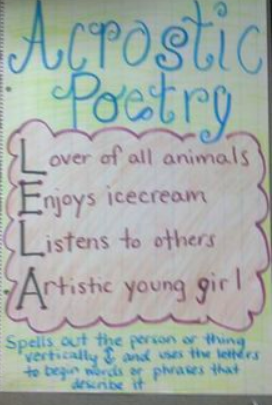 Acrostic
Poetry
Lover of all animals
Enjoys icecream
Listens to others
Artistic young girl
Spells out the person or thing
vertically ↕ and uses the letters
to begin words or phrases that
describe it